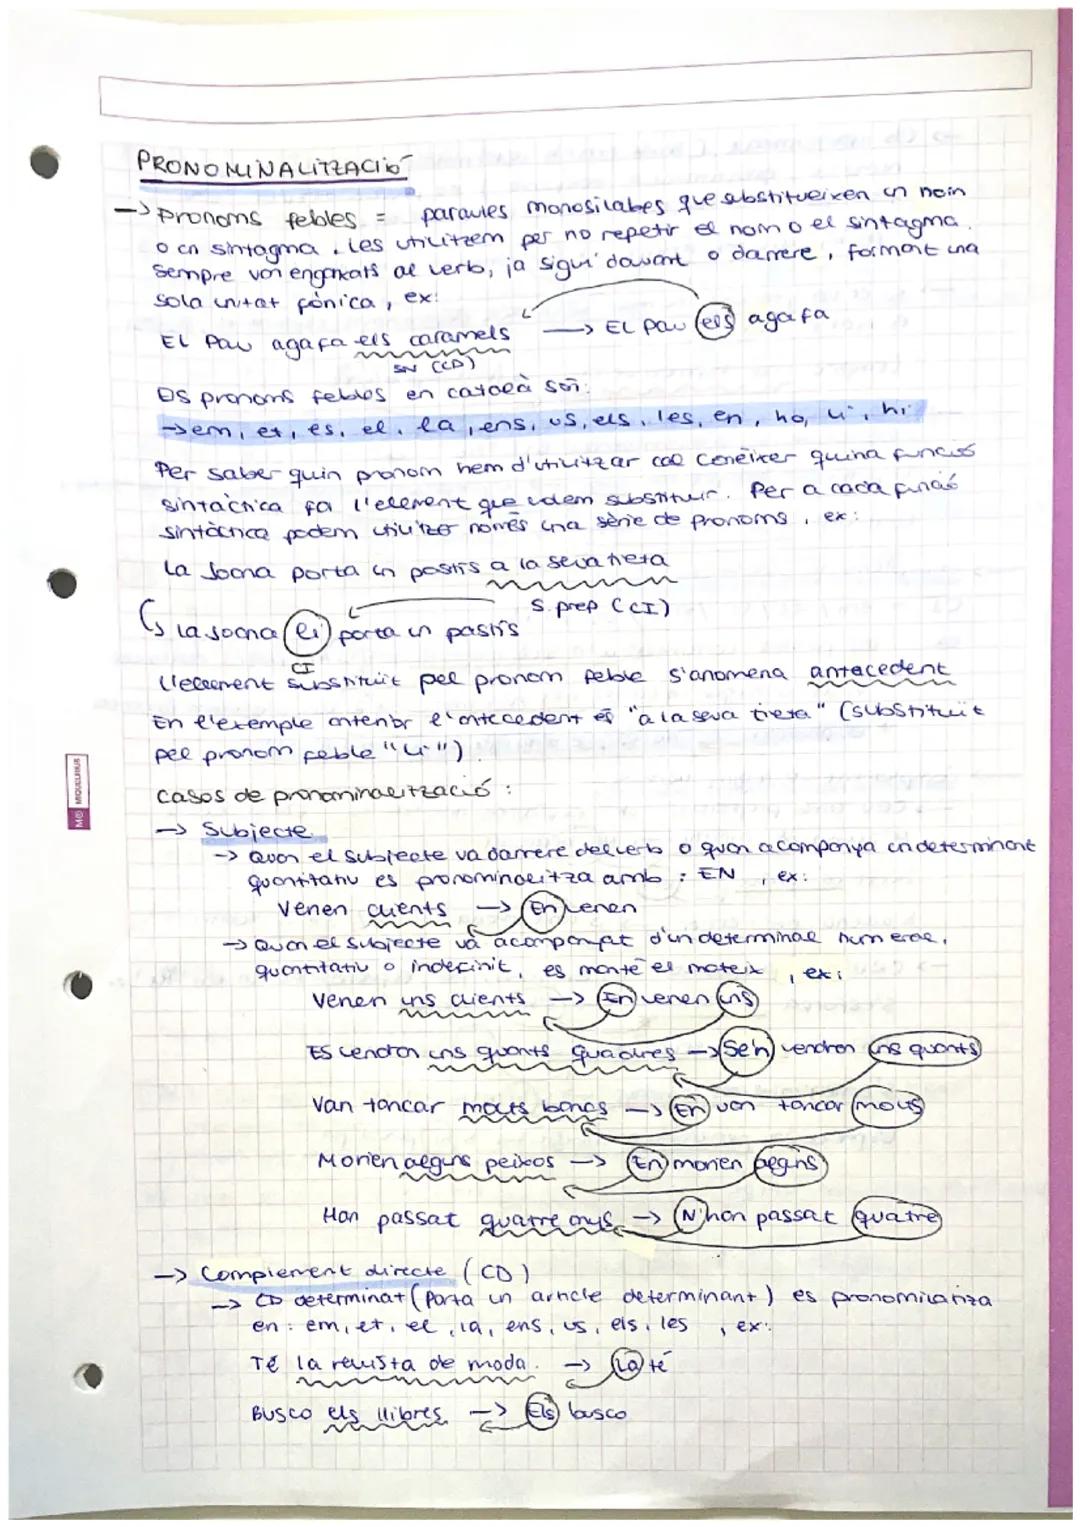 PRONOMINALITZACIÓ
-> Pronoms febles = paraules monosíl·labes que substitueixen un nom
o un sintagma. Les utilitzem per no repetir el nom o el sintagma.
Sempre van enganxats al verb, ja sigui davant o darrere, formant una
sola unitat fònica, ex:
El Pau agafa els caramels -> El Pau els agafa
SN (CD)
Els pronoms febles en català són:
-> em, et, es, el, la, ens, us, els, les, en, ho, li, hi
Per saber quin pronom hem d'utilitzar cal conèixer quina funció
sintàctica fa l'element que volem substituir. Per a cada funció
sintàctica podem utilitzar només una sèrie de pronoms, ex:
La Joana porta un pastís a la seva tieta
S. prep (CI)
La Joana li porta un pastís
CI
L'element substituït pel pronom feble s'anomena antecedent
En l'exemple anterior l'antecedent és "a la seva tieta" (substituït
pel pronom feble "li").
Casos de pronominalització:
-> Subjecte
-> Quan el subjecte va darrere del verb o quan acompanya un determinant
quantitatiu es pronominalitza amb: EN, ex:
Venen clients -> En venen
-> Quan el subjecte va acompanyat d'un determinal numeral,
quantitatiu o indefinit, es manté el mateix, ex:
Venen uns clients -> En venen uns
Es vendran uns quants quadres -> Se'n vendran uns quants
Van tancar molts bancs -> En van tancar molts
Morien alguns peixos -> En morien alguns
Han passat quatre anys -> N'han passat quatre
-> Complement directe (CD)
-> CD determinat (Porta un article determinant) es pronominalitza
en: em, et, el, la, ens, us, els, les, ex:
Té la revista de moda. -> La té
Busco els llibres -> Els busco
MIQUELRIUS